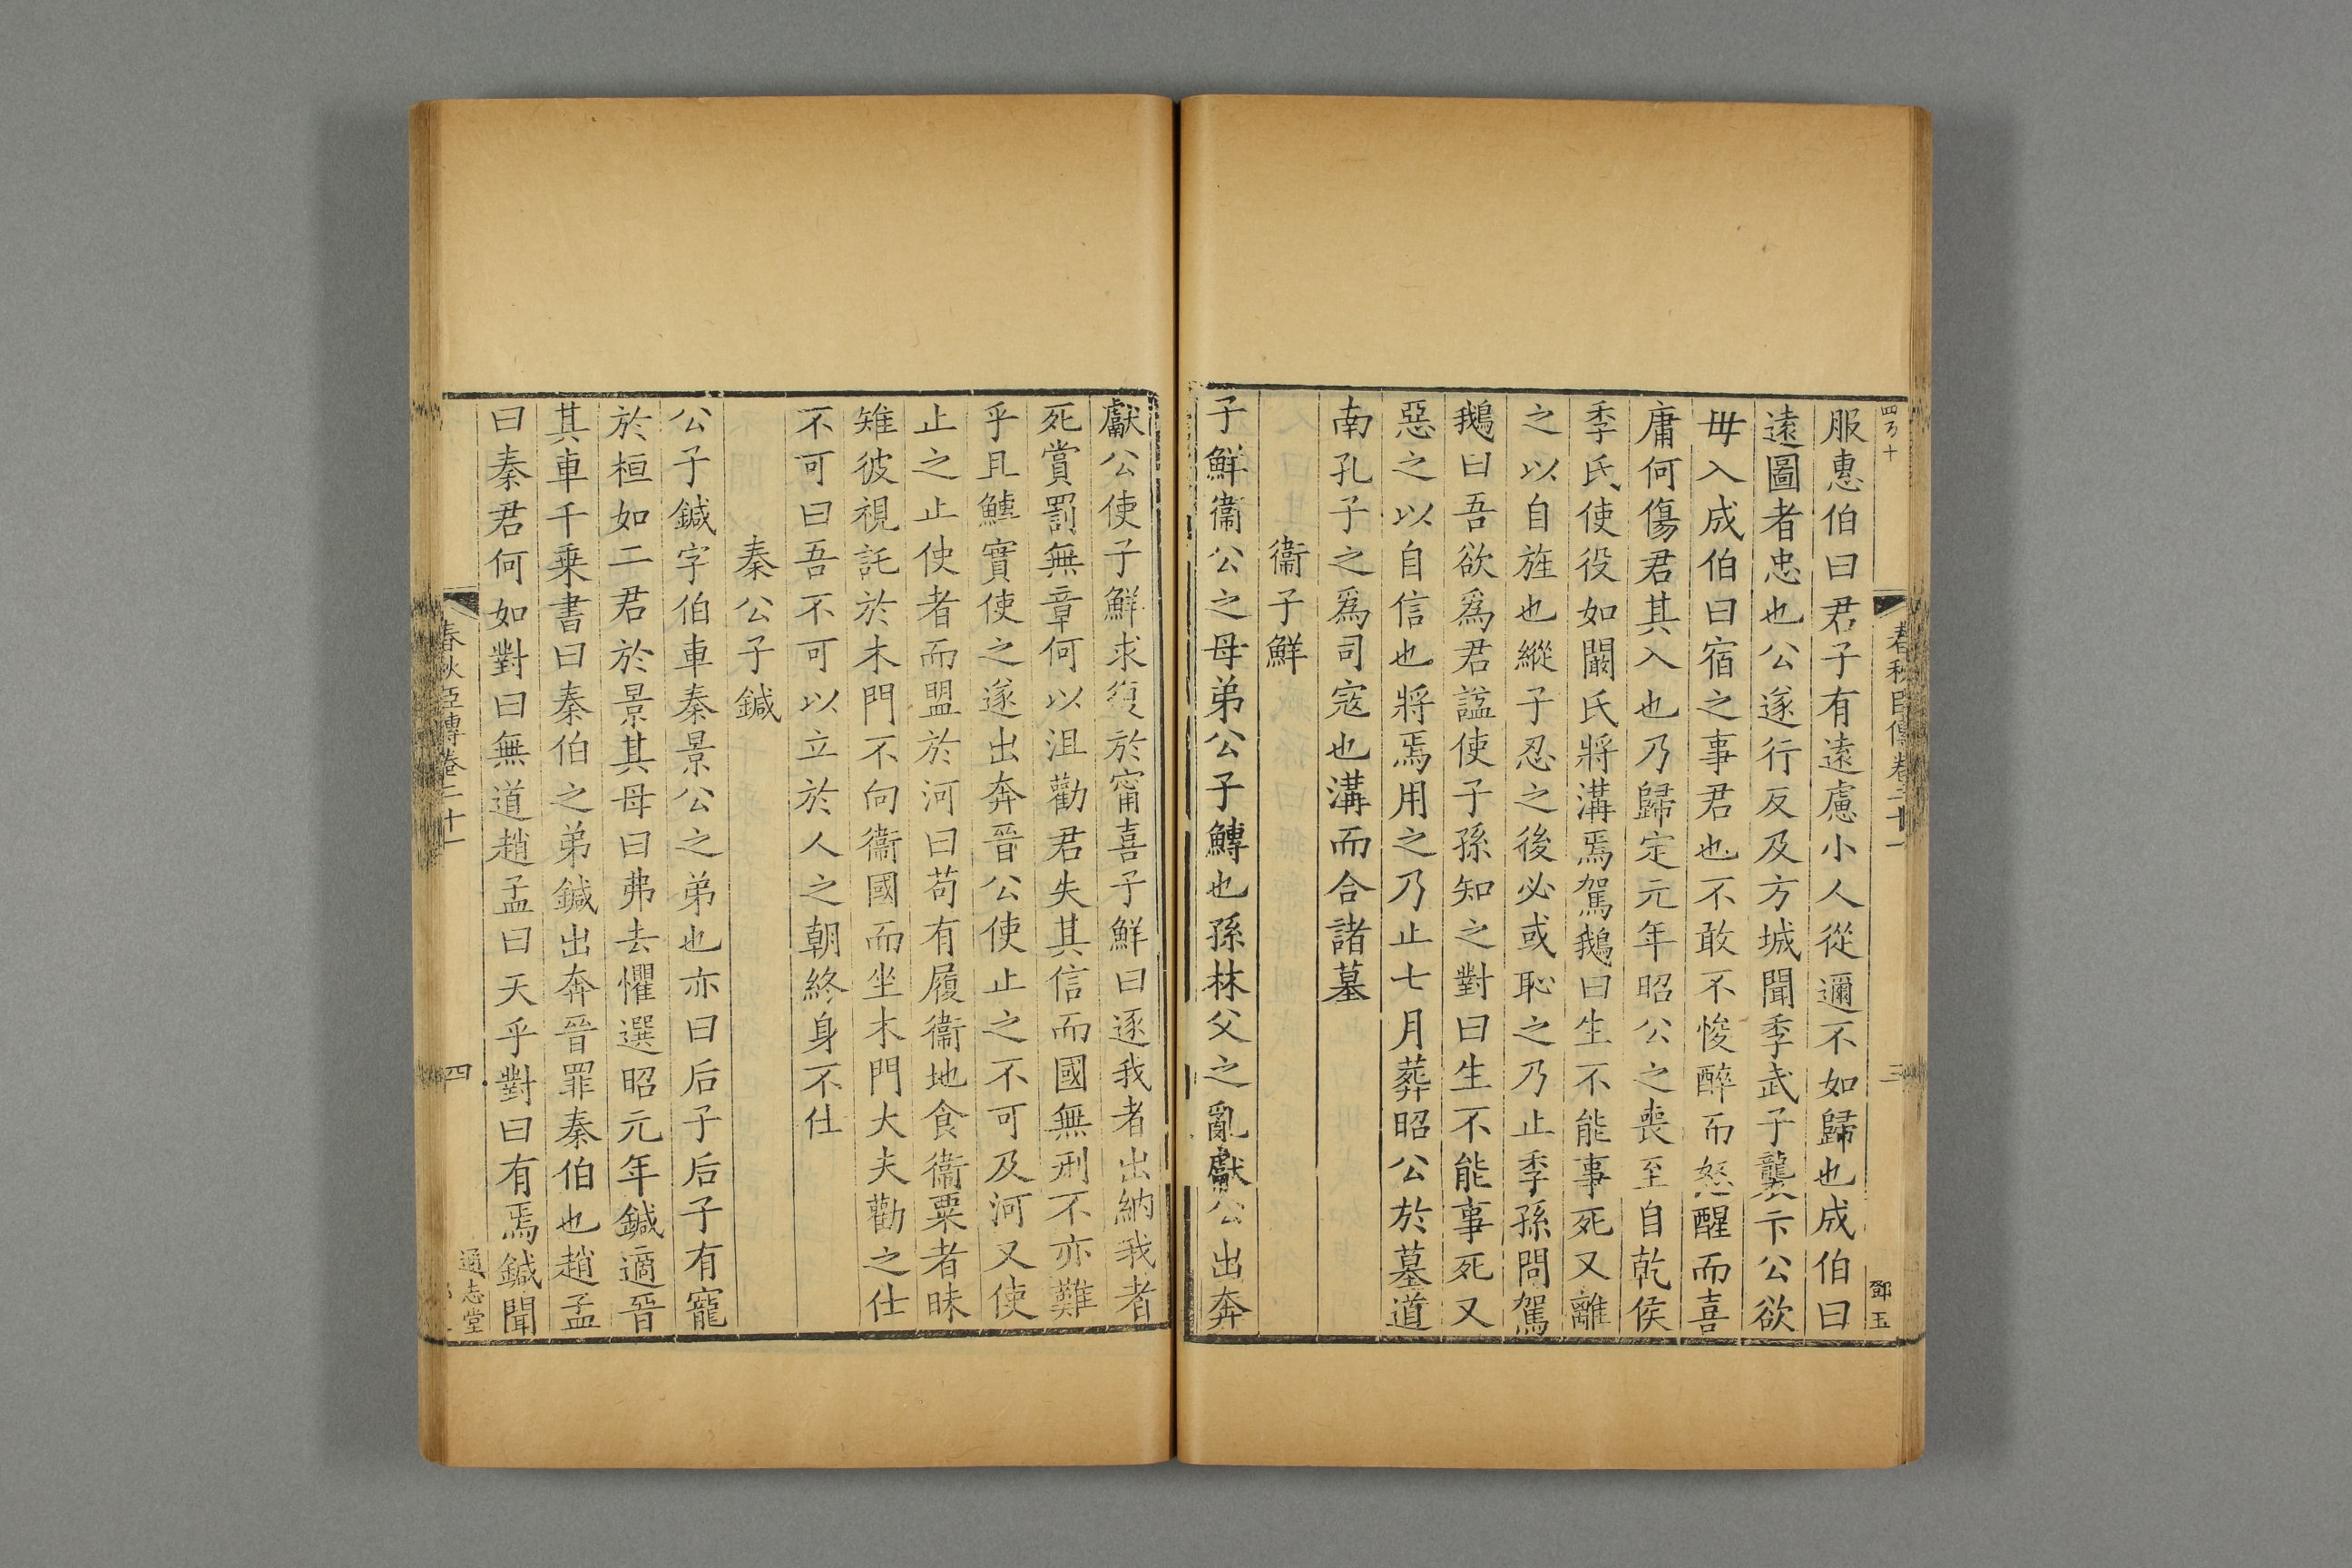 四百十
春秋臣傳卷二十一
三
鄧玉
服惠伯曰君子有遠慮小人從邇不如歸也成伯曰
遠圖者忠也公遂行反及方城聞季武子襲卞公欲
毋入成伯曰宿之事君也不敢不悛醉而怒醒而喜
庸何傷君其入也乃歸定元年昭公之喪至自乾侯
季氏使役如闞氏將溝焉駕鵝曰生不能事死又離
之以自旌也縱子忍之後必或恥之乃止季孫問駕
鵝曰吾欲爲君諡使子孫知之對曰生不能事死又
惡之以自信也將焉用之乃止七月葬昭公於墓道
南孔子之爲司寇也溝而合諸墓
衞子鮮
子鮮衞公之母弟公子鱄也孫林父之亂獻公出奔
獻公使子鮮求復於甯喜子鮮曰逐我者出納我者
死賞罰無章何以沮勸君失其信而國無刑不亦難
乎且鱄實使之遂出奔晉公使止之不可及河又使
止之止使者而盟於河曰苟有履衞地食衞粟者昧
雉彼視託於木門不向衞國而坐木門大夫勸之仕
不可曰吾不可以立於人之朝終身不仕
秦公子鍼
公子鍼字伯車秦景公之弟也亦曰后子后子有寵
於桓如二君於景其母曰弗去懼選昭元年鍼適晉
其車千乗書曰秦伯之弟鍼出奔晉罪秦伯也趙孟
曰秦君何如對曰無道趙孟曰天乎對曰有焉鍼聞
春秋臣傳卷二十一
四
通志堂